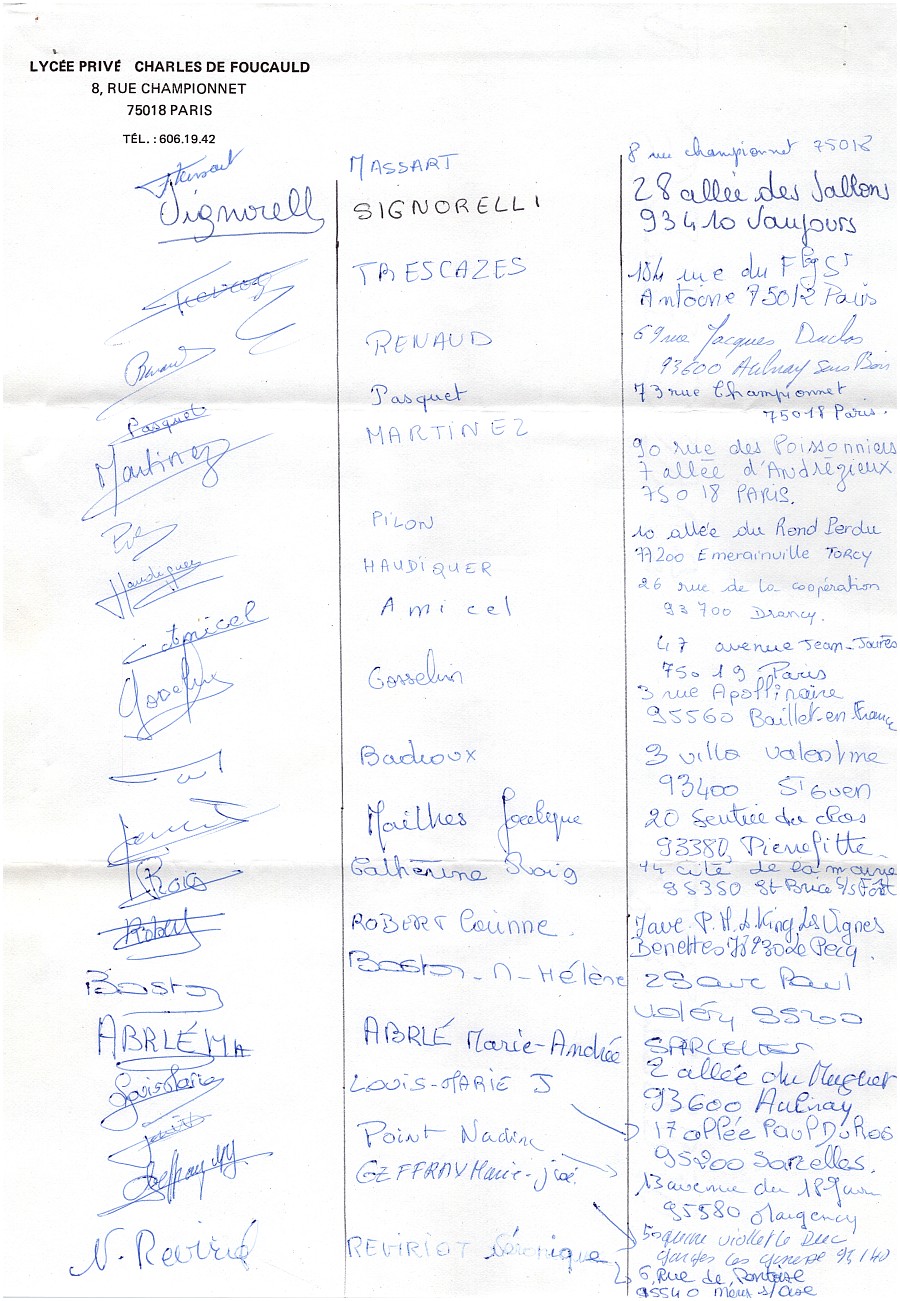 LYCÉE PRIVÉ CHARLES DE FOUCAULD
8, RUE CHAMPIONNET
75018 PARIS
TÉL. : 606.19.42
MASSART 8 rue championnet 75018
Signorell SIGNORELLI 28 allée des Sallons
93410 Vaujours
TRESCAZES 184 rue du Fbg St
Antoine 75012 Paris
Renaud RENAUD 69 rue Jacques Duclos
93600 Aulnay sous Bois
Pasquet Pasquet 73 rue Championnet
75018 Paris.
Martinez MARTINEZ 90 rue des Poissonniers
7 allée d'Andrégieux
75018 PARIS.
PILON 10 allée du Rond Perdu
77200 Emerainville TORCY
Haudiquer HAUDIQUER 26 rue de la coopération
93700 Drancy.
Amicel Amicel 47 avenue Jean-Jaurès
75019 Paris
Gosselin Gosselin 3 rue Apollinaire
95560 Baillet-en-France
Badioux 3 villa Valentine
93400 St Ouen
Mailhes Jocelyne 20 Sentier du Clos
93380 Pierrefitte
Roig Catherine Roig 14 cité de la mairie
95350 St Brice s/s Fôrt
Robert ROBERT Corinne. 7 ave P. M. L. King Les Vignes
Benettes 78230 Le Pecq.
Baston Baston-M-Hélène 28 ave Paul
Valéry 95200
SARCELLES
ABRLÉ MA ABRLÉ Marie-Andrée 2 allée du Muguet
93600 Aulnay
Louis Marie LOUIS-MARIE J 17 allée Paul Duros
95200 Sarcelles.
Point Nadine 13 avenue du 18 Juin
95580 Margency
Geffray MJ GEFFRAY Marie-José 5 square viollet le Duc
Garges les Gonesse 95140
V. Reviriot REVIRIOT Véronique 6, Rue de Pontoise
95540 Méry s/Oise